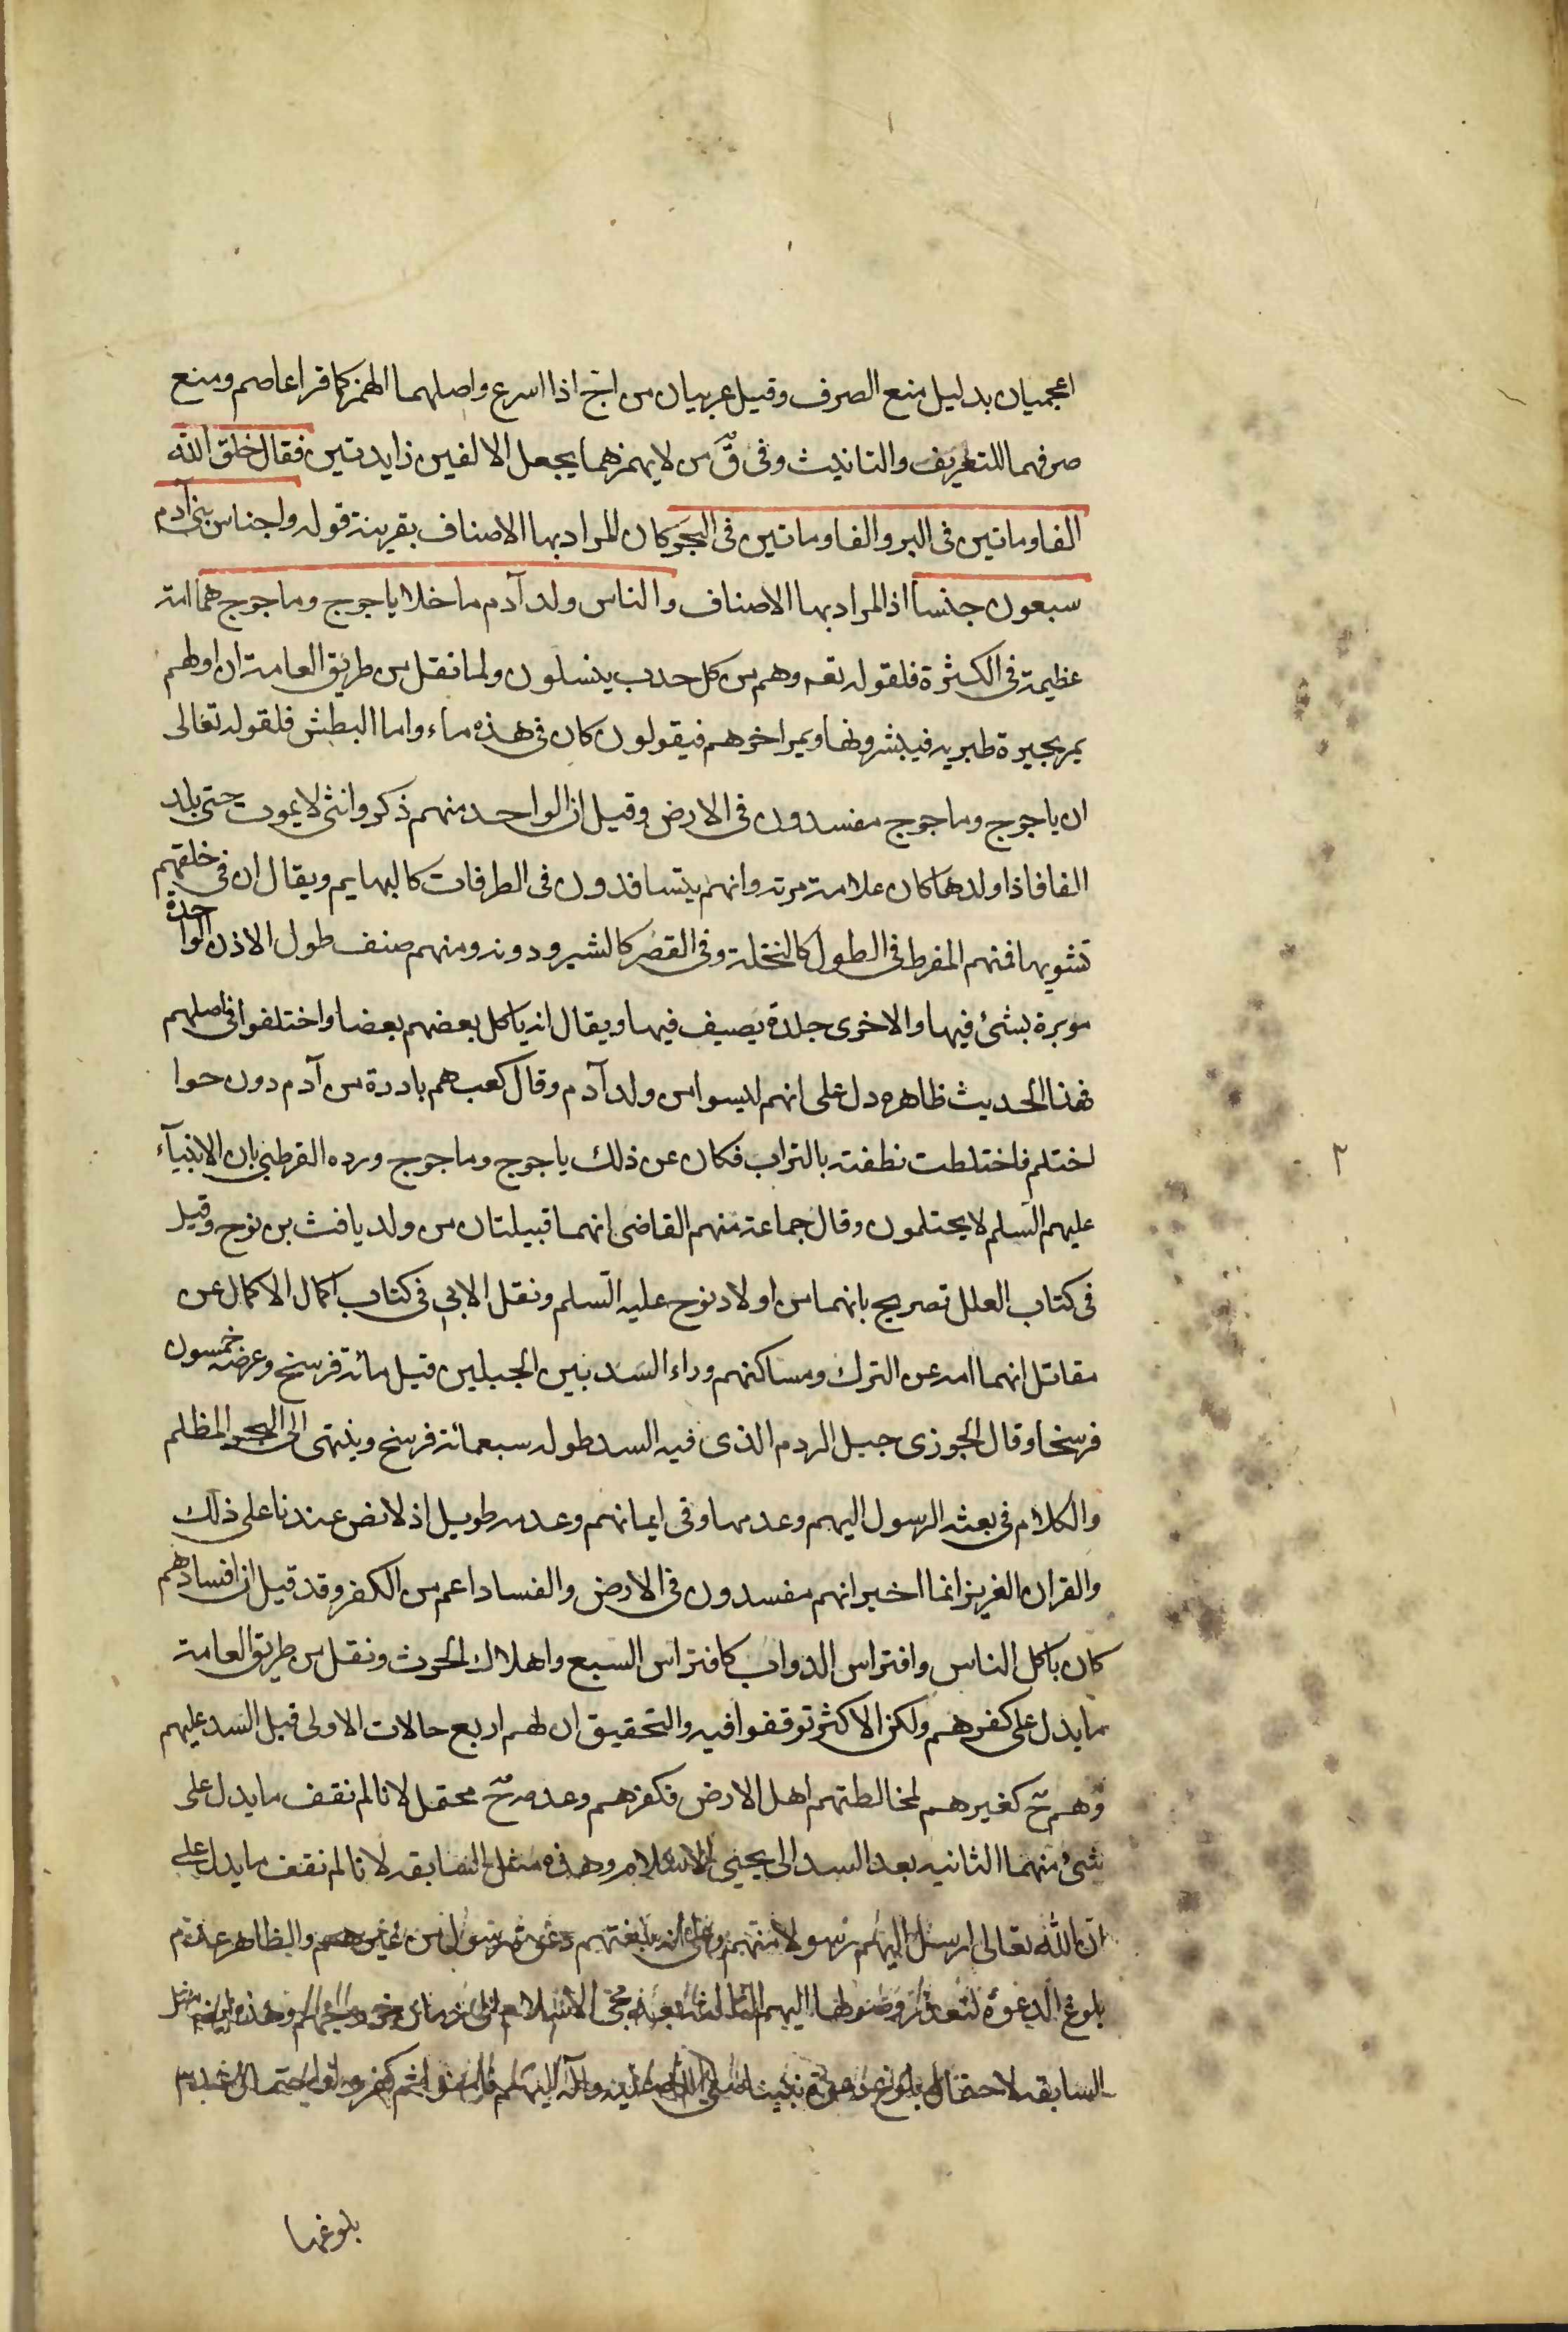 اعجميان بدليل منع الصرف وقيل عربيان من اجّ اذا اسرع واصلهما الهمز كما قرا عاصم ومنع
صرفهما للتعريف والتانيث وفى قّ من لا يهمزهما يجعل الالفين زايدتين فقال خلق الله
الفا ومائتين فى البر والفا ومائتين فى البحر كان المراد بها الاصناف بقرينة قوله واجناس بنى آدم
سبعون جنسا اذ المراد بها الاصناف والناس ولد آدم ما خلا ياجوج وماجوج هما امة
عظيمة فى الكثرة فلقوله تعـ وهم من كل حدب ينسلون ولما نقل من طريق العامة ان اولهم
يمر بحيرة طبريه فيشربونها ويمر اخرهم فيقولون كان فى هذه ماء واما البطش فلقوله تعالى
ان ياجوج وماجوج مفسدون فى الارض وقيل ان الواحد منهم ذكر وانثى لا يموت حتى يلد
الفا فاذا ولدها كان علامة موته وانهم يتسافدون فى الطرقات كالبهايم ويقال ان فى خلقهم
تشويها فمنهم المفرط فى الطول كالنخلة وفى القصر كالشبر ودونه ومنهم صنف طول الاذن الواحدة
موبرة يشتى فيها والاخرى جلدة يصيف فيها ويقال انه ياكل بعضهم بعضا واختلفوا فى اصلهم
فهذا الحديث ظاهره دل على انهم ليسوا من ولد آدم وقال كعب هم بادرة من آدم دون حوا
احتلم فاختلطت نطفته بالتراب فكان عن ذلك ياجوج وماجوج ورده القرطبى بان الانبيآء
عليهم السلم لا يحتلمون وقال جماعة منهم القاضى انهما قبيلتان من ولد يافث بن نوح وقيل
فى كتاب العلل تصريح بانهما من اولاد نوح عليه السلم ونقل الابى فى كتاب اكمال الاكمال عن
مقاتل انهما امه من الترك ومساكنهم وراء السد بين الجبلين قيل مائة فرسخ وعرضه خمسون
فرسخا وقال الجوزى جبل الردم الذى فيه السد طوله سبعمائة فرسخ وينتهى الى البحر المظلم
والكلام فى بعثة الرسول اليهم وعدمها وفى ايمانهم وعدمه طويل اذ لا نص عندنا على ذلك
والقران العزيز انما اخبر انهم مفسدون فى الارض والفساد اعم من الكفر وقد قيل ان افسادهم
كان باكل الناس وافتراس الدواب كافتراس السبع واهلاك الحرث ونقل من طريق العامة
ما يدل على كفرهم ولكن الاكثر توقفوا فيه والتحقيق ان لهم اربع حالات الاولى قبل السد عليهم
وهم حّ كغيرهم لمخالطتهم اهل الارض فكفرهم وعدمه حّ محتمل لانا لم نقف ما يدل على
شىء منهما الثانيه بعد السد الى يجيئ الاسلام وهذه مثل السابقه لانا لم نقف ما يدل على
ان الله تعالى ارسل اليهم رسولا منهم بلغتهم دعوة رسول من غيرهم والظاهر عدم
بلوغ الدعوة لتعذر وصولها اليهم الثالثه بعد الاسلام وهذه مثل
السابقه لاحتمال بلوغ دعوة نبينا صلى الله عليه وآله اليهم
بلوغها
٣